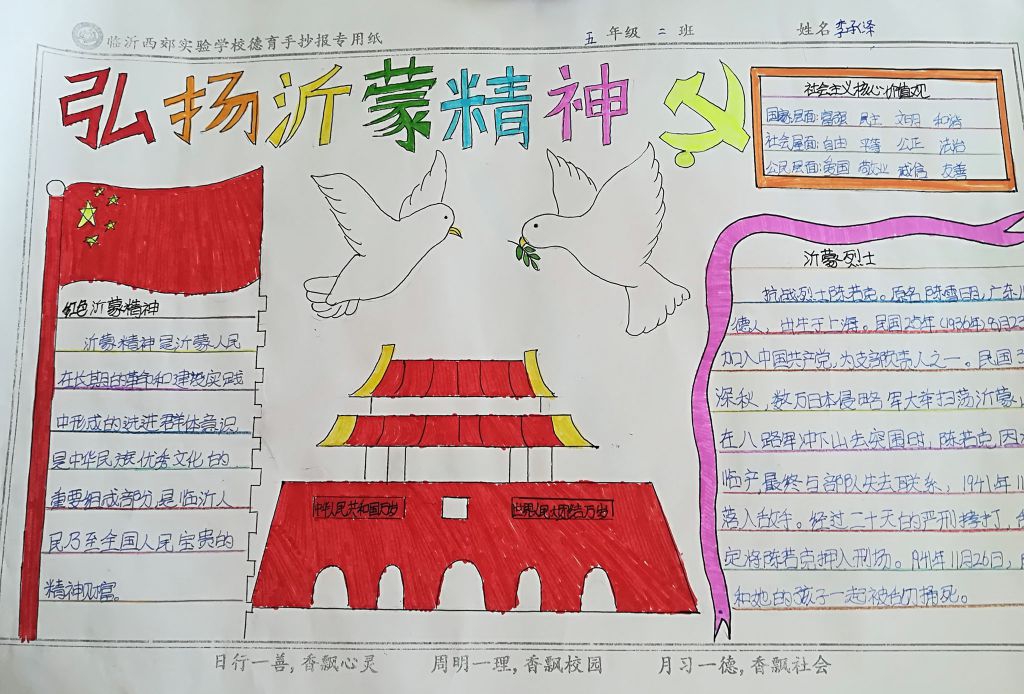 临沂西郊实验学校德育手抄报专用纸
五 年级 二 班
姓名 李承泽
弘扬沂蒙精神
社会主义核心价值观
国家层面:富强 民主 文明 和谐
社会层面:自由 平等 公正 法治
公民层面:爱国 敬业 诚信 友善
红色沂蒙精神
沂蒙精神是沂蒙人民
在长期的革命和建设实践
中形成的先进群体意识
是中华民族优秀文化的
重要组成部分,是临沂人
民乃至全国人民宝贵的
精神财富。
中华人民共和国万岁
世界人民大团结万岁
沂蒙烈士
抗战烈士陈若克。原名陈雪明,广东
德人,出生于上海。民国25年(1936年)8月
加入中国共产党,为支部负责人之一。民国
深秋,数万日本侵略军大举扫荡沂蒙
在八路军冲下山去突围时,陈若克因
临产,最终与部队失去联系,1941年11
落入敌手。经过二十天的严刑拷打,
定将陈若克押入刑场。1941年11月26日,
和她的孩子一起被刺刀捅死。
日行一善,香飘心灵 周明一理,香飘校园 月习一德,香飘社会